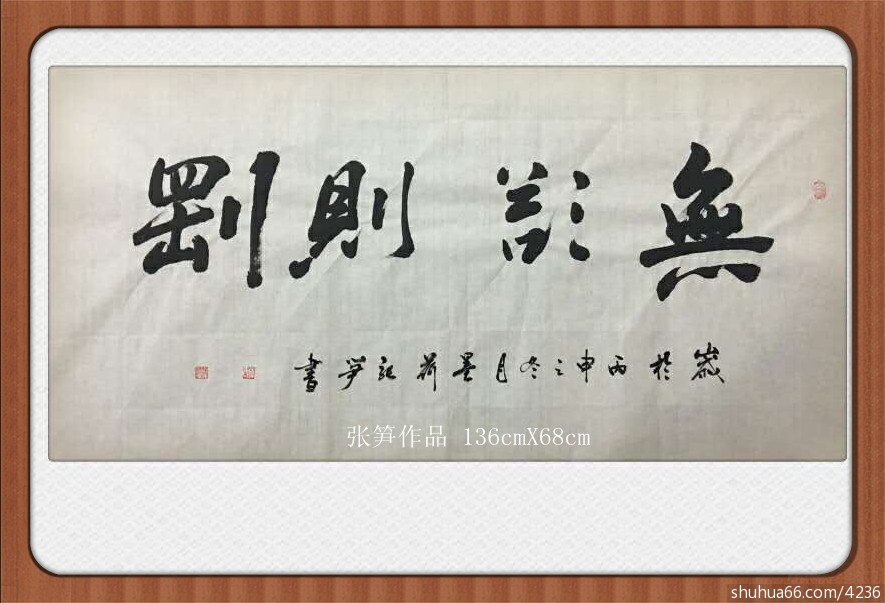 無欲則剛
歲於丙申之冬月墨記笋書
张笋作品 136cmX68cm
shuhua66.com/4236